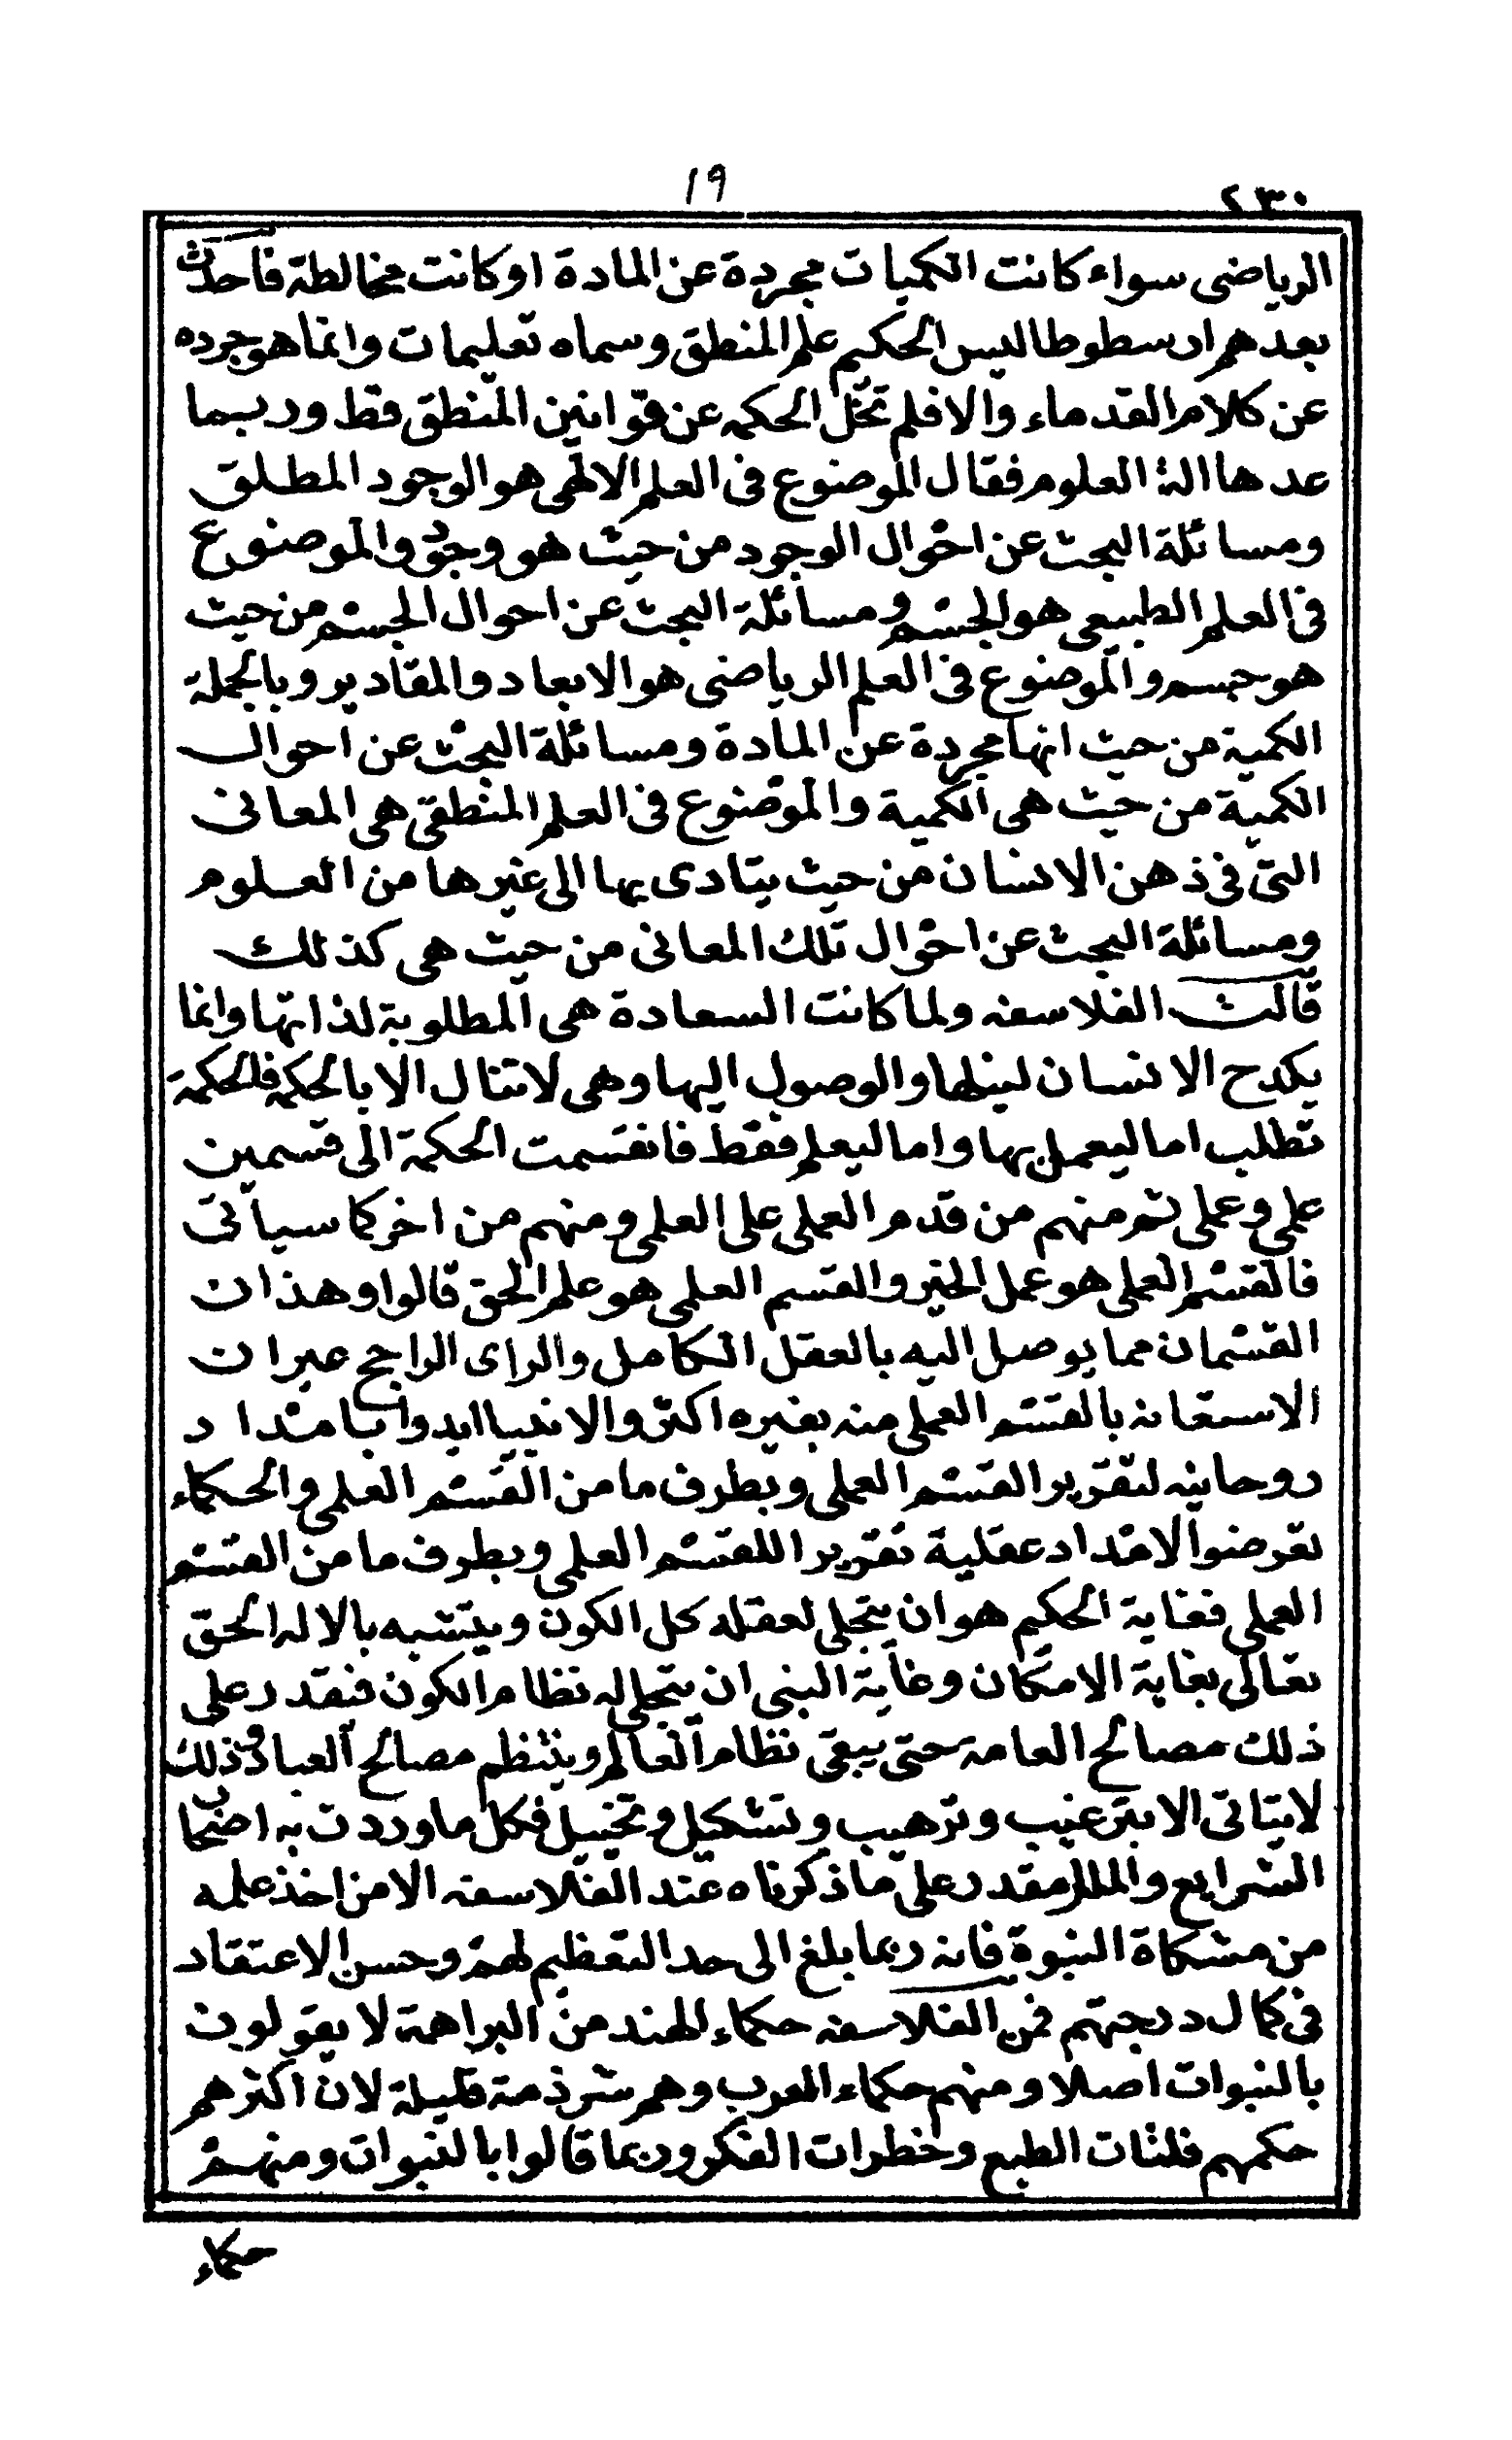 ١٩
٢٣٠
الرياضى سواء كانت الكميات مجردة عن المادة او كانت مخالطة فاحدث
بعدهم ارسطوطاليس الحكيم علم المنطق وسماه تعليمات وانما هو جرده
عن كلام القدماء والا فلم تخل الحكمه عن قوانين المنطق قط وربما
عدها الة العلوم فقال الموضوع فى العلم الالهى هو الوجود المطلق
ومسائلة البحث عن احوال الوجود من حيث هو وجود والموضوع
فى العلم الطبيعى هو الجسم ومسائلة البحث عن احوال الجسم من حيث
هو جسم والموضوع فى العلم الرياضى هو الابعاد والمقادير وبالجملة
الكمية من حيث انها مجردة عن المادة ومسائلة البحث عن احوال
الكمية من حيث هى الكمية والموضوع فى العلم المنطقى هى المعانى
التى فى ذهن الانسان من حيث يتادى بها الى غيرها من العلوم
ومسائلة البحث عن احوال تلك المعانى من حيث هى كذلك
قالت الفلاسفه ولما كانت السعادة هى المطلوبة لذاتها وانما
يكدح الانسان لينلها والوصول اليها وهى لاتنال الا بالحكمه فالحكمة
تطلب اما ليعمل بها واما ليعلم فقط فانقسمت الحكمة الى قسمين
علمى وعملى ثم منهم من قدم العملى على العلمى ومنهم من اخر كما سيأتى
فالقسم العملى هو عمل الخير والقسم العلمى هو علم الحق قالوا وهذان
القسمان مما يوصل اليه بالعقل الكامل والراى الراجح غير ان
الاستعانه بالقسم العملى منه بغيره اكثر والانبيا ايدوا بامداد
روحانيه لتقرير القسم العملى وبطرف ما من القسم العلمى والحكماء
تعرضوا لامداد عقلية تقريرا للقسم العلمى وبطرف ما من القسم
العملى فغاية الحكيم هو ان يتجلى لعقله كل الكون ويتشبه بالاله الحق
تعالى بغاية الامكان وغاية النبى ان يتجلى له نظام الكون فيقدر على
ذلك مصالح العامة حتى يبقى نظام العالم وينتظم مصالح العباد وذلك
لايتاتى الا بترغيب وترهيب وتشكيل وتخييل فكل ماوردت به اصحاب
الشرايع والملل مقدر على ما ذكرناه عند الفلاسفه الا من اخذ علمه
من مشكاة النبوة فانه ربما بلغ الى حد التعظيم لهم وحسن الاعتقاد
فى كمال درجتهم فمن الفلاسفه حكماء الهند من البراهمة لا يقولون
بالنبوات اصلا ومنهم حكماء العرب وهم شرذمة قليلة لان اكثرهم
حكمهم فلتات الطبع وخطرات الفكر وربما قالوا بالنبوات ومنهم
حكماء